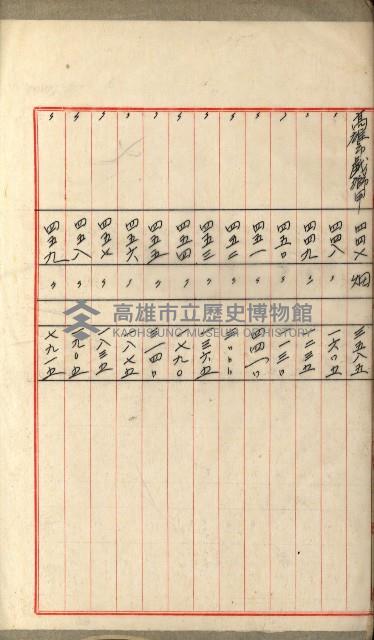 四四七 畑 三五八五
〃 四四八 〃 一六〇五
〃 四四九 〃 二三五
〃 四五〇 〃 一三〇
〃 四五一 〃
〃 四五二 〃
〃 四五三 〃 三六五
〃 四五四 〃 七九〇
〃 四五五 〃 三一四〇
〃 四五六 〃 八七五
〃 四五七 〃 一八三五
〃 四五八 〃 一九〇五
〃 四五九 〃 七九一五
高雄市立歷史博物館
KAOHSIUNG MUSEUM OF HISTORY